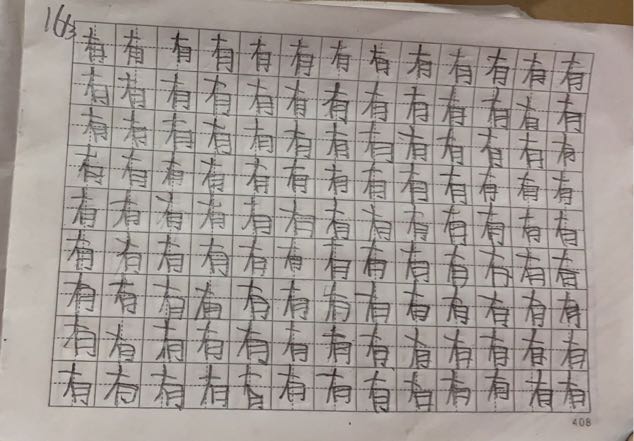 163
有有有有有有有有有有有有有
有有有有有有有有有有有有有
有有有有有有有有有有有有有
有有有有有有有有有有有有有
有有有有有有有有有有有有有
有有有有有有有有有有有有有
有有有有有有有有有有有有有
有有有有有有有有有有有有有
有有有有有有有有有有有有有
408